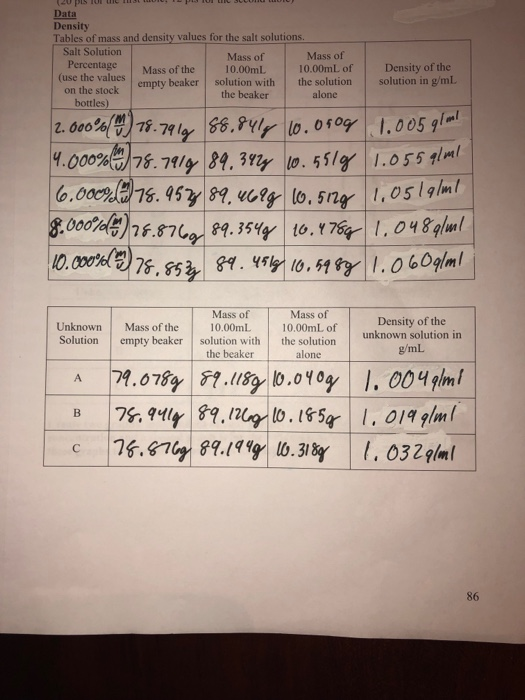 Data
Density
Tables of mass and density values for the salt solutions.
Salt Solution Percentage (use the values on the stock bottles) | Mass of the empty beaker | Mass of 10.00mL solution with the beaker | Mass of 10.00mL of the solution alone | Density of the solution in g/mL
2.000% (m/v) | 78.791g | 88.841g | 10.050g | 1.005 g/ml
4.000% (m/v) | 78.791g | 89.342g | 10.551g | 1.055 g/ml
6.000% (m/v) | 78.957g | 89.469g | 10.512g | 1.051 g/ml
8.000% (m/v) | 78.876g | 89.354g | 10.478g | 1.048 g/ml
10.000% (m/v) | 78.853g | 89.451g | 10.598g | 1.060 g/ml
Unknown Solution | Mass of the empty beaker | Mass of 10.00mL solution with the beaker | Mass of 10.00mL of the solution alone | Density of the unknown solution in g/mL
A | 79.078g | 89.118g | 10.040g | 1.004 g/ml
B | 78.941g | 89.126g | 10.185g | 1.019 g/ml
C | 78.876g | 89.194g | 10.318g | 1.032 g/ml
86